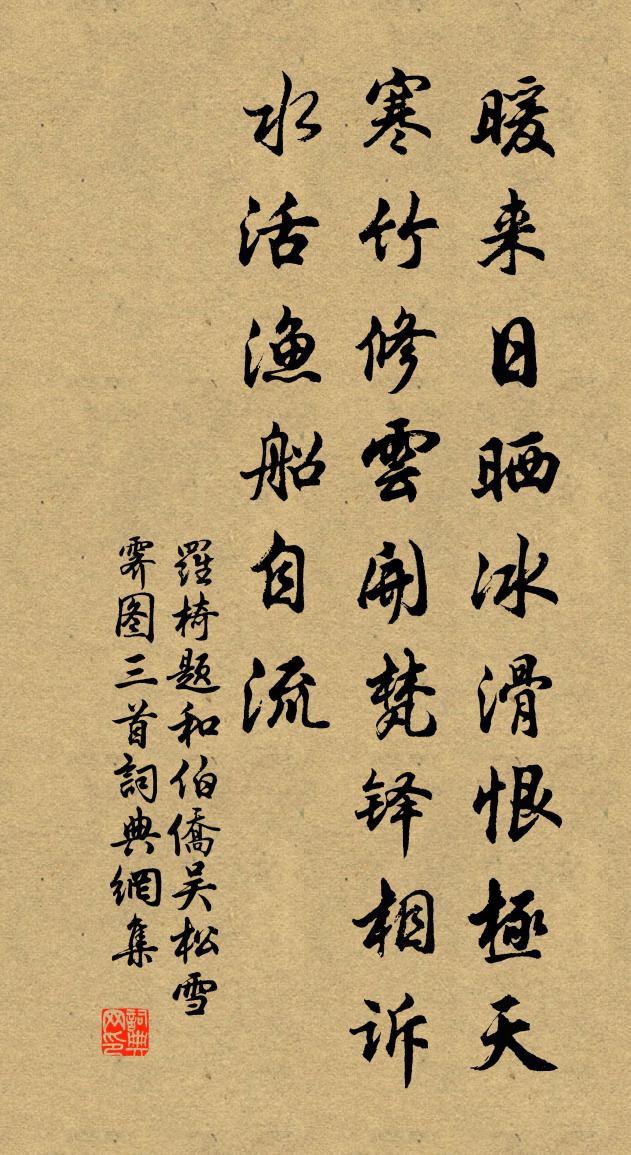 暖来日晒冰滑恨極天
寒竹修雲開梵铎相诉
水活漁船自流
羅椅题和伯僑吴松雪
霁图三首詞典網集
詞典网印